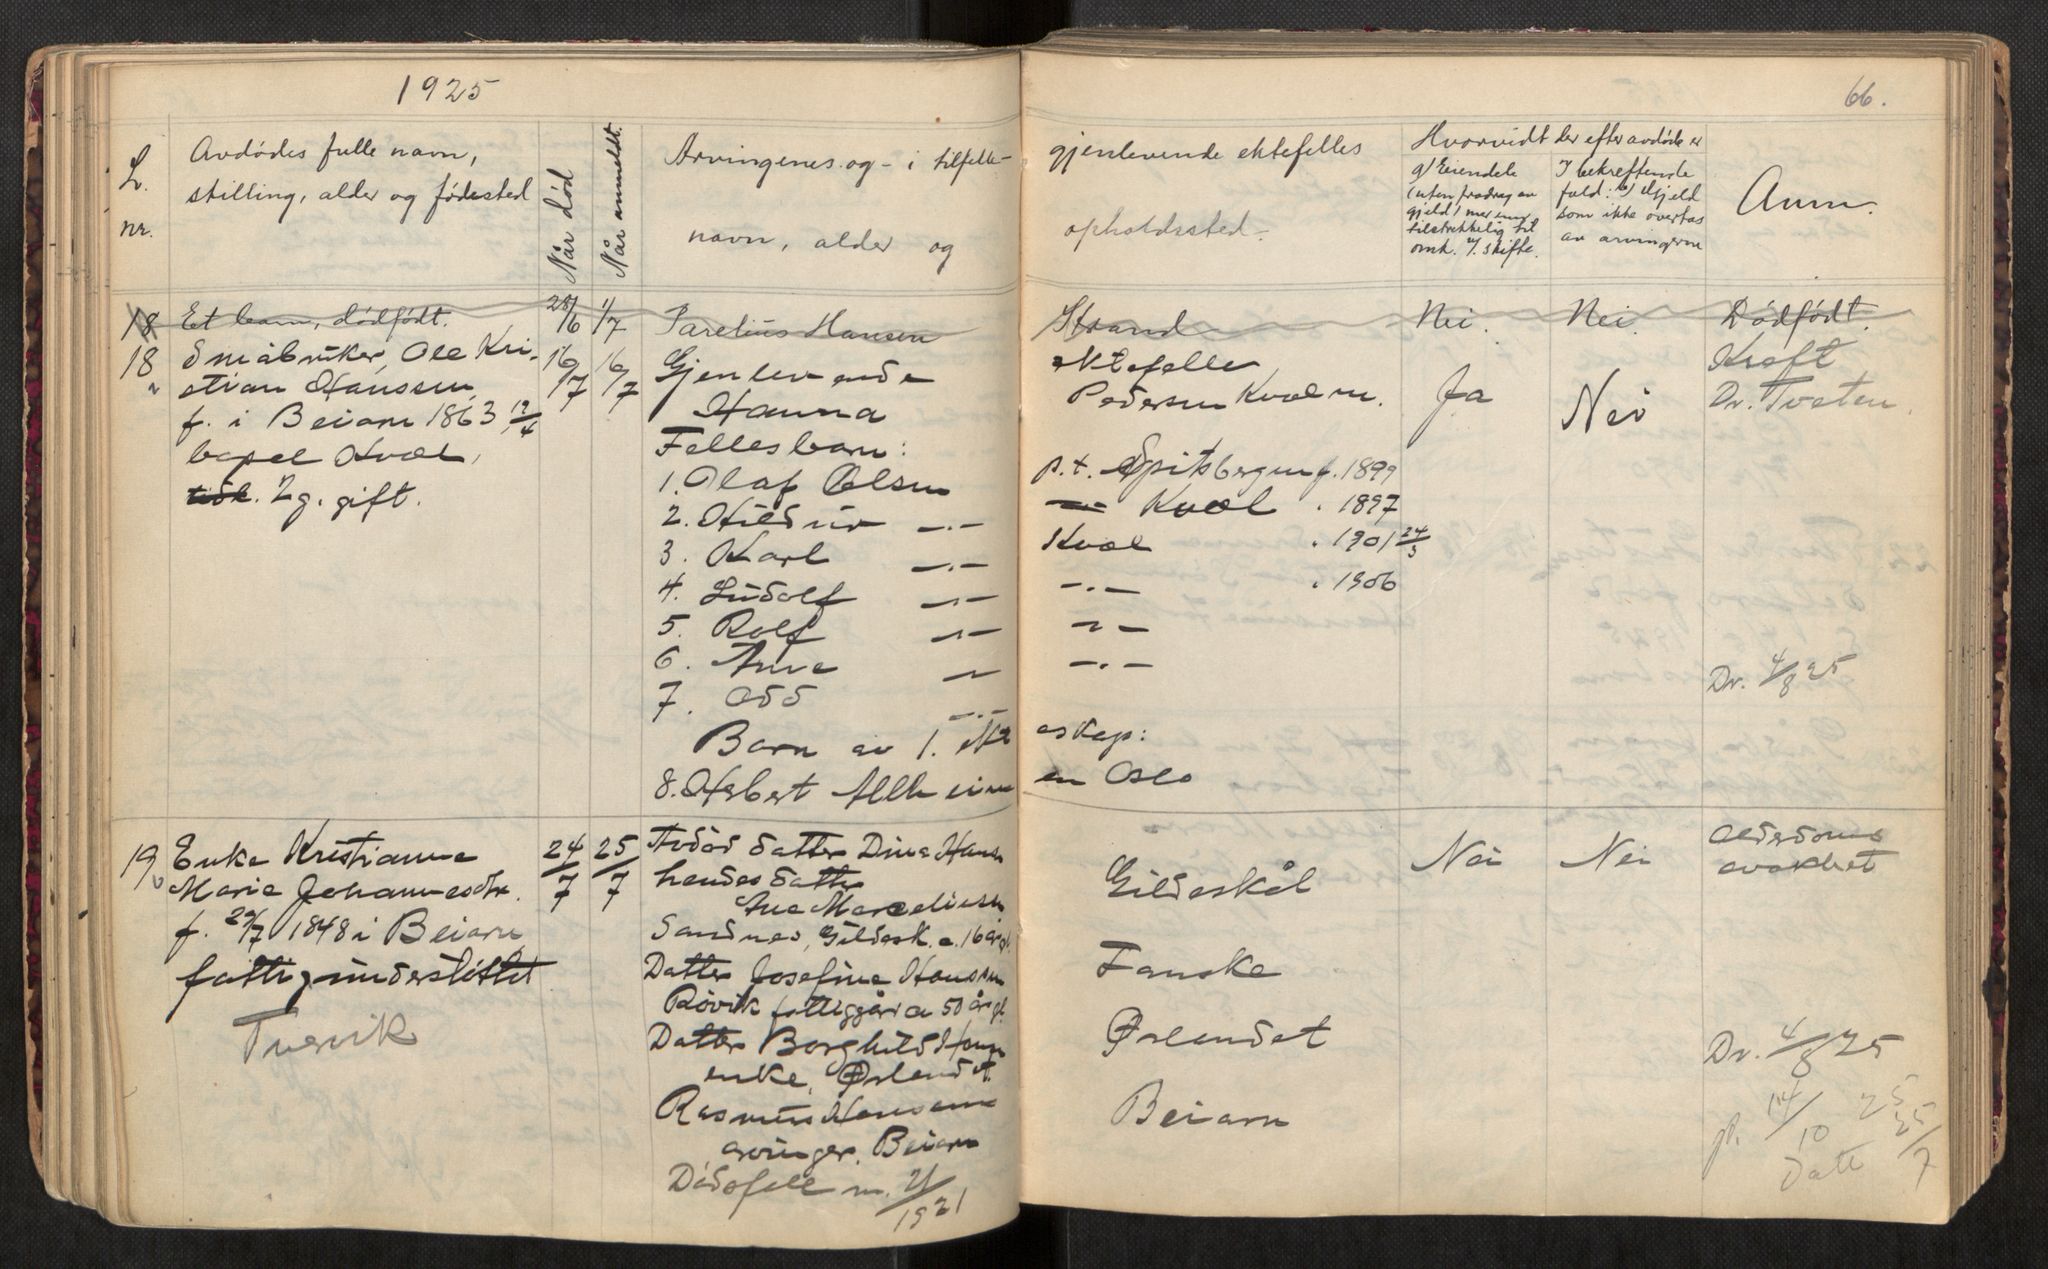 1925
66.
L. nr.
Avdødes fulle navn,
stilling, alder og fødested
Når død
Når anmeldt.
Arvingenes og - i tilfelle -
navn, alder og
gjenlevende ektefelles
opholdssted.
Hvorvidt der efter avdøde er
a) Eiendele
(uten fradrag av
gjeld) mer enn
tilstrekkelig til
omk. v. skifte.
I bekreftende
fald: b) Gjeld
som ikke overtas
av arvingerne
Anm.
18 Et barn, dødfødt. 28/6 1/7 Parelius Hansen Strand Nei. Nei. Dødfødt.
18 Småbruker Ole Kri- 16/7 16/7 Gjenlevende ektefelle Kreft
stian Hanssen, Hanna Pedersen Kvæl Ja Nei Dr. Tveten.
f. i Beiarn 1863 19/4 Fellesbarn:
bopel Kvæl, 1. Olaf Olsen p.t. Spitsbergen f. 1899
2 g. gift. 2. Hildur -.- Kvæl . 1897
3. Karl -.- Kvæl . 1901 24/3
4. Ludolf -.- -.- . 1906
5. Rolf -.- -.-
6. Arne -.- -.-
7. Odd -.- Dr. 4/8 25
Barn av 1. ekteskap:
8. Herbert Oslo
19 Enke Kristianne 24/7 25/7 Avdød datter Dina Hans Nei Nei Alderdoms
Marie Johannesdtr. hendes datter Gildeskål svakhet
f. 29/7 1848 i Beiarn Ane Marceliesen
fattigunderstøttet Sandnes, Gildesk. ca. 16 år gl.
Datter Josefine Hanssen Fauske
Røvik fattiggård ca 50 år gl.
Tvervik Datter Borghild Hansen Ørlandet Dr. 4/8 25
enke, Ørlandet.
Rasmus Hansens Beiarn
arvinger, Beiarn 14/10 25
Dødsfall m. 21/1921 25/7